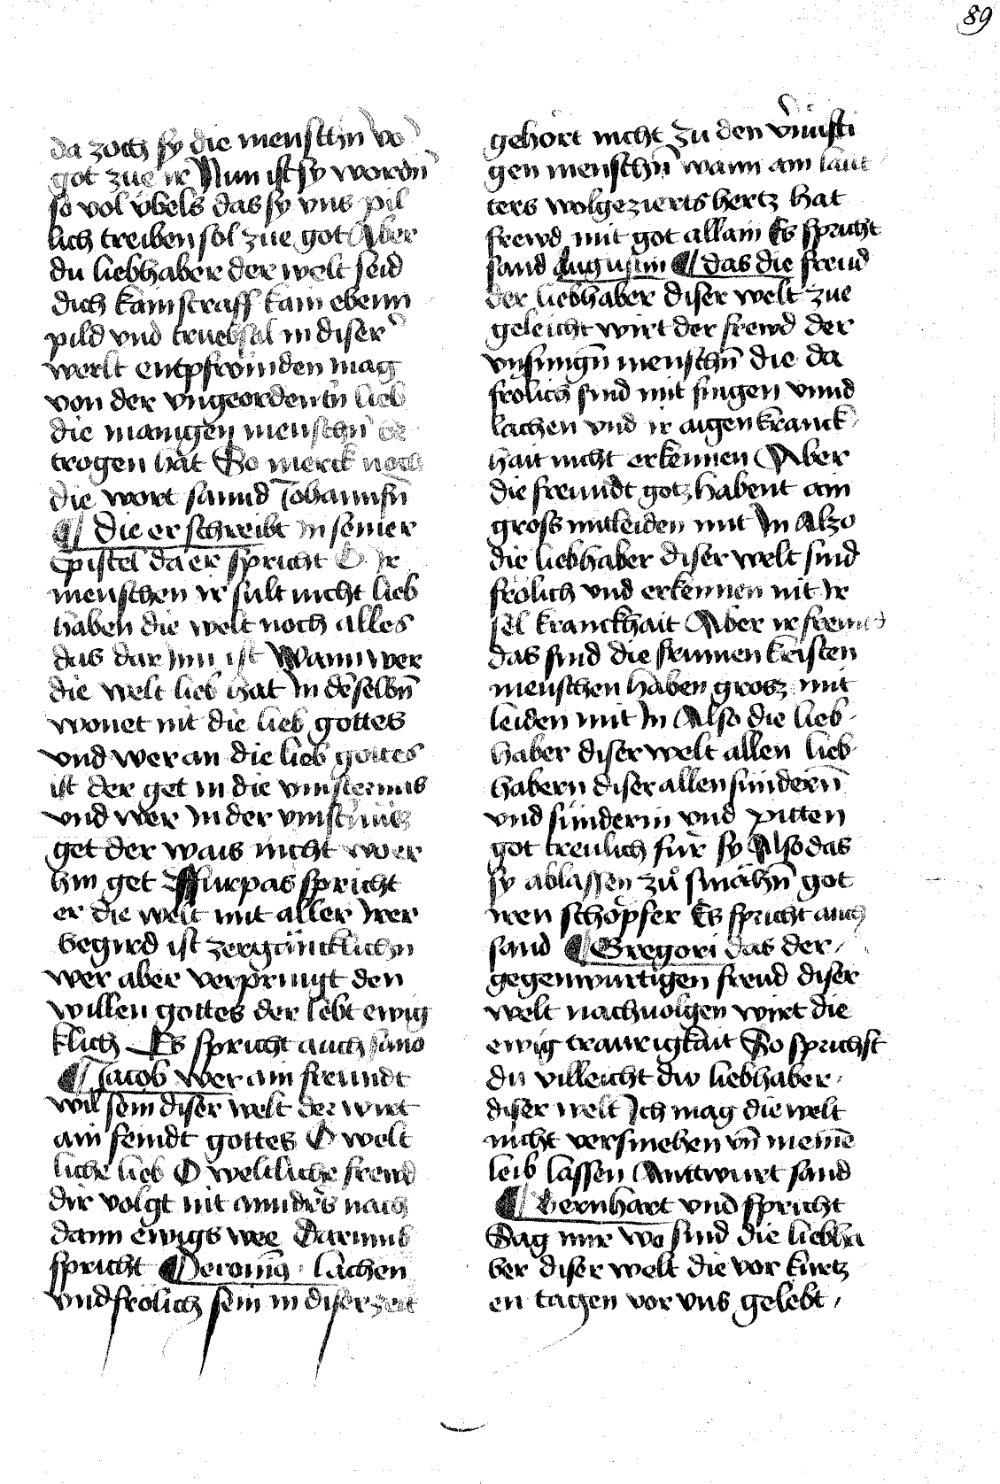 89
da zoch sy die menschn̄ vō
got zue ir Nun ist sy wordn̄
so vol vbels das sy vns pil
lich treiben sol zue got Aber
du liebhaber der welt seid
dich kain straff kain ebenn
pild vnd truebsal in diser
werlt entpfrömden mag
von der vngeordentn̄ lieb
die manigen menschn̄ be
trogen hat So merck noch
die wort sannd Johannsn̄
¶ die er schreibt in seiner
Epistel da er spricht O Ir
menschen Ir sült nicht lieb
haben die welt noch alles
das dar Inn ist Wann wer
die welt lieb hat In deselbn̄
wonet nit die lieb gottes
vnd wer an die lieb gottes
ist der get in die vinsternus
vnd wer In der vinsternüs
get der wais nicht wo er
hin get Fürpas spricht
er die welt mit aller Irer
begird ist zergäncklichn
wer aber verpringt den
willen gottes der lebt ewig
klich Es spricht auch sand
¶ Jacob wer ain freundt
wil sein diser welt der wirt
ain feindt gottes O welt
liche lieb O weltliche frewd
dir volgt nit annders nach
dann ewigs wee Darumb
spricht ¶ Jeronim̄9 lachen
vnd frölich sein in diser zeit
gehört nicht zu den v̄nüfti
gen menschn̄ wann ain laut
ters wolgezierts hertz hat
frewd mit got allain Es spricht
sand Augustin ¶ das die freud
der liebhaber diser welt zue
geleicht wirt der frewd der
vnsinign̄ menschn̄ die da
frölich sind mit singen vnnd
lachen vnd ir aigen kranck
hait nicht erkennen Aber
die freundt gotz habent ain
gross mitleiden mit In Alzo
die liebhaber diser welt sind
frölich vnd erkennen nit Ir
sel kranckhait Aber ir freund
das sind die frummen kristen
menschen haben grosz mit
leiden mit In Also die lieb
haber diser welt allen lieb
habern diser allen sündern̄
vnd sünderin vnd pitten
got treulich für sy Also das
sy ablassen zů smähn̄ got
iren schöpfer Es spricht auch
sand ¶ Gregori das der
gegenwürtigen freud diser
welt nachuolgen wirt die
ewig traurigkait So sprichst
du villeicht dw liebhaber
diser welt Ich mag die welt
nicht versmehen vn̄ meinē
leib lassen Anttwurt sand
¶ Bernhart vnd spricht
Sag mir wo sind die liebha
ber diser welt die vor kurtz
en tagen vor vns gelebt